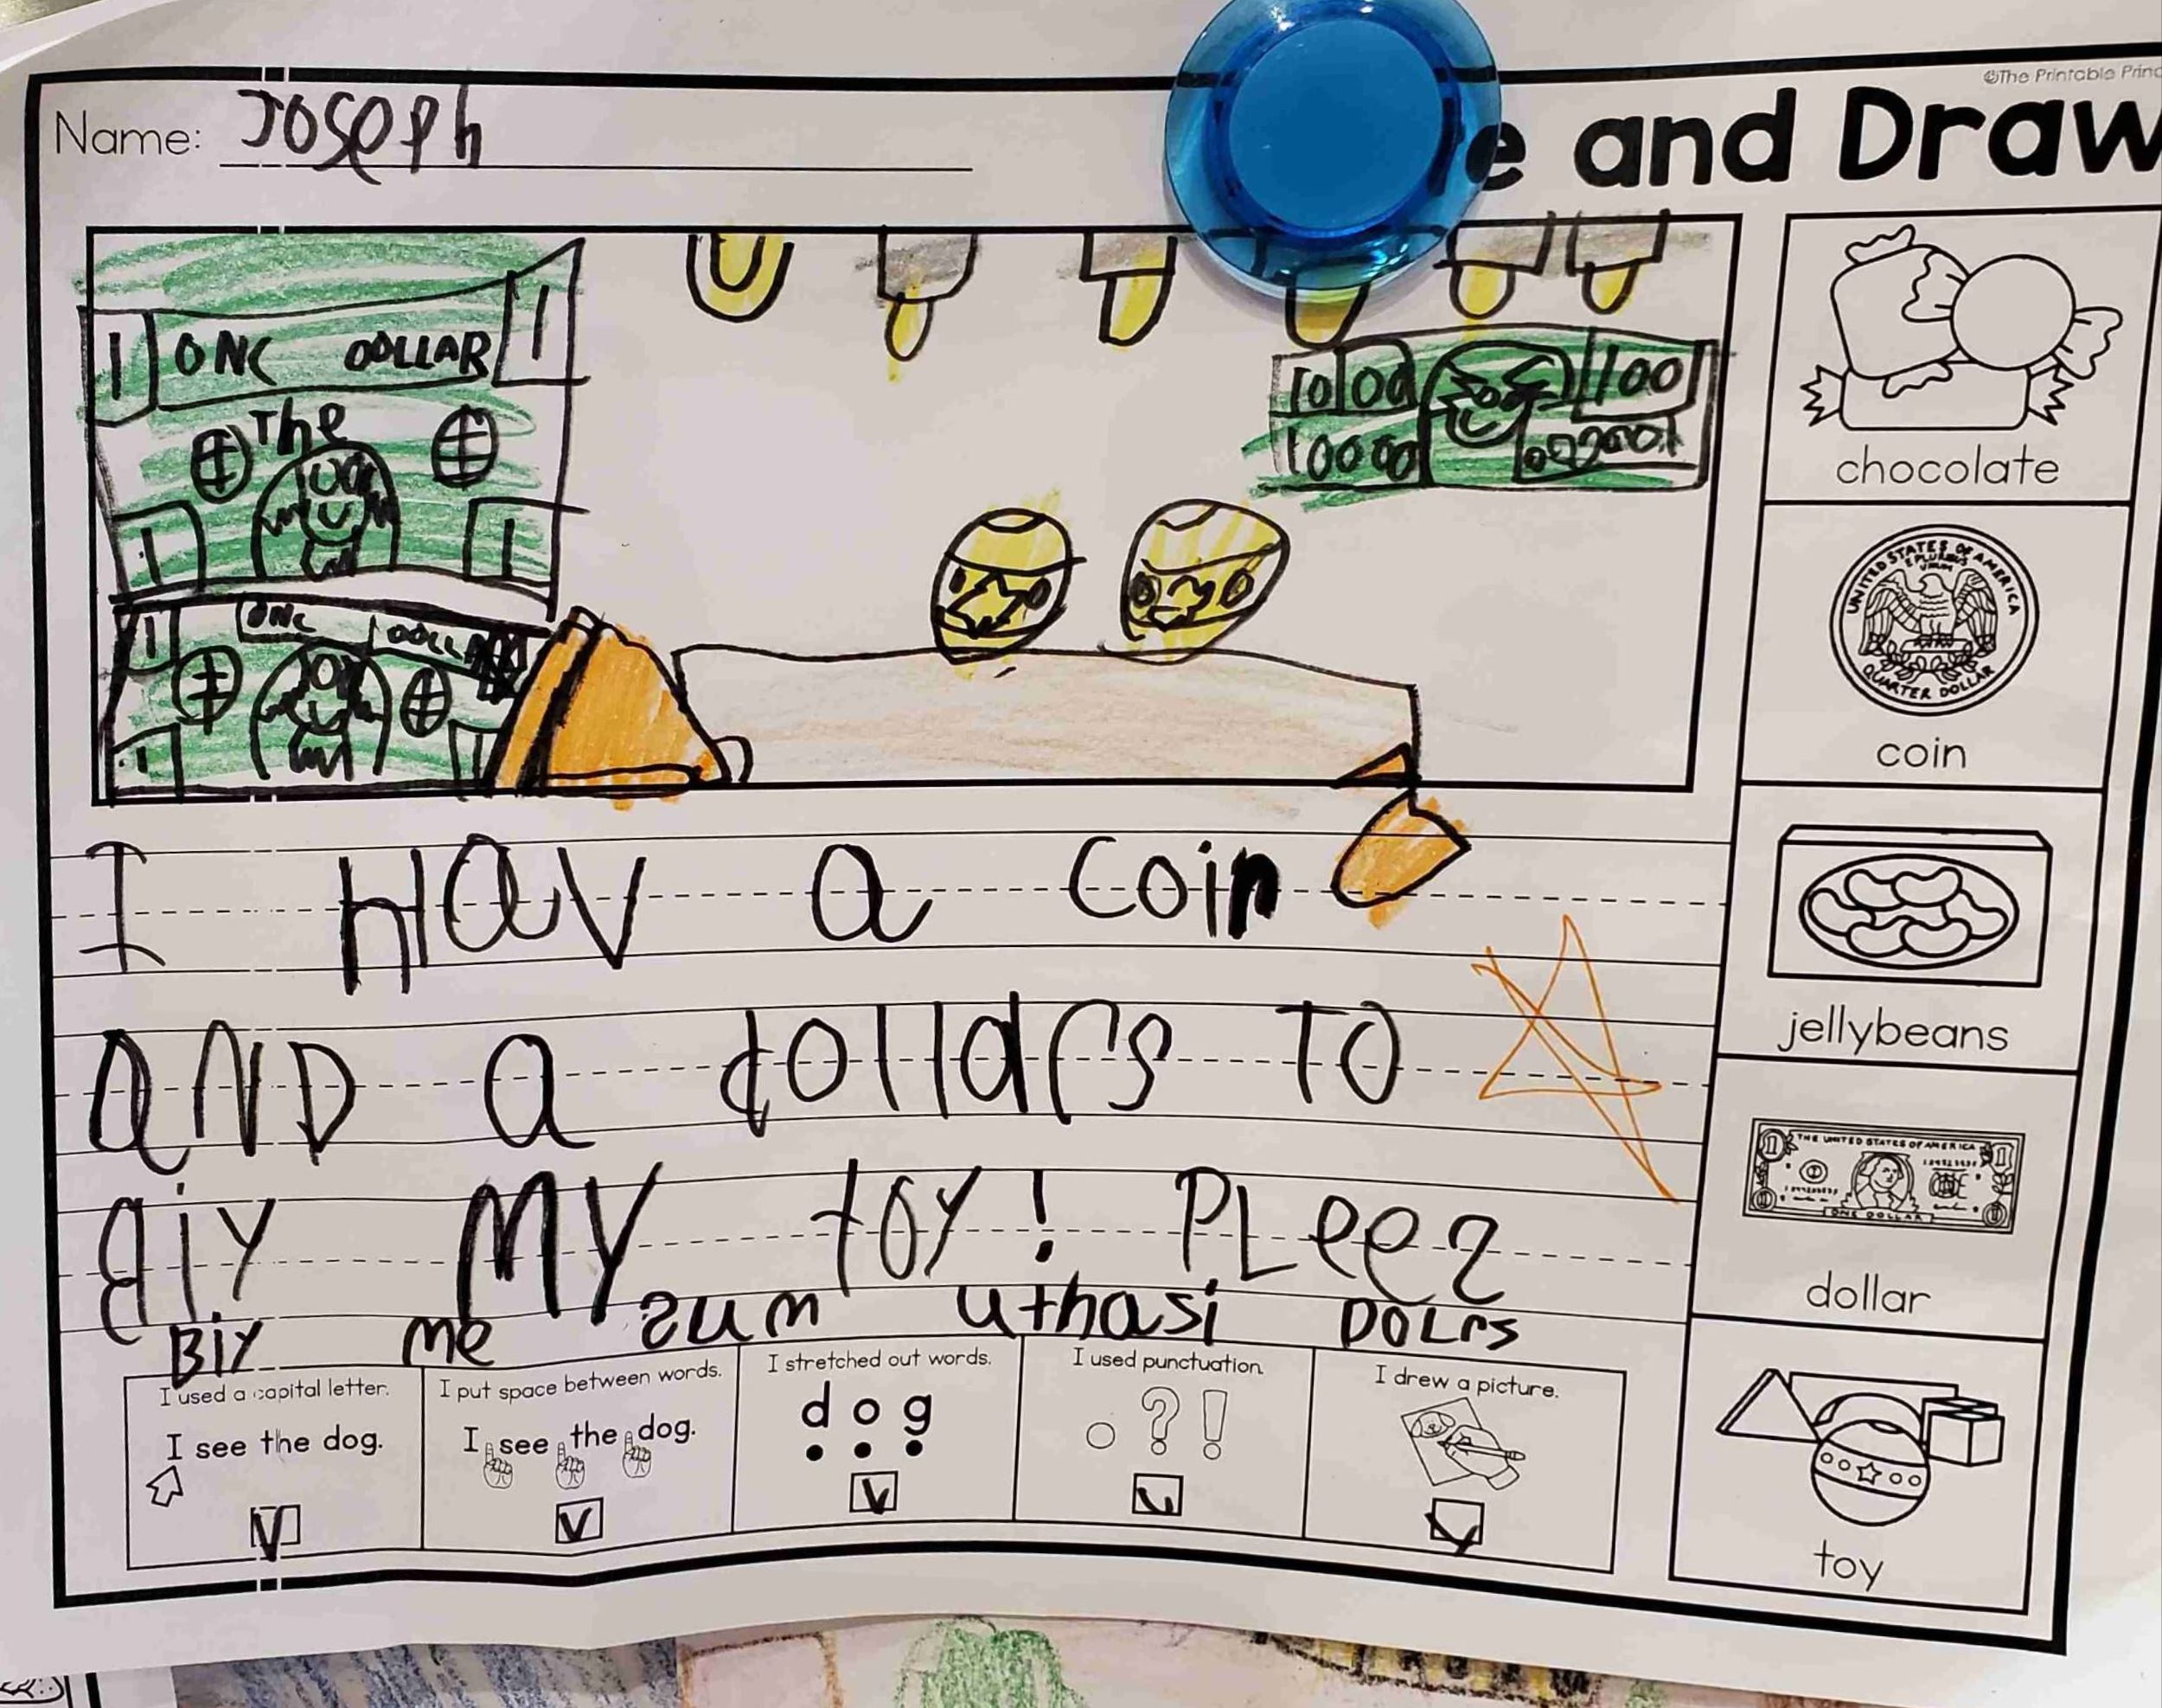 ©The Printable Princ
Name: Joseph
e and Draw
1 ONC DOLLAR 1
The
1 1
1 ONC DOLLA
1
10100 100
10000
chocolate
UNITED STATES OF AMERICA
E PLURIBUS UNUM
QUARTER DOLLAR
coin
jellybeans
THE UNITED STATES OF AMERICA
ONE DOLLAR
dollar
toy
I HaV a coin
aND a dollars TO
BiY MY toy! PLeez
BiY me zum uthasi DOLrs
I used a capital letter.
I see the dog.
I put space between words.
I see the dog.
I stretched out words.
dog
I used punctuation.
? !
I drew a picture.